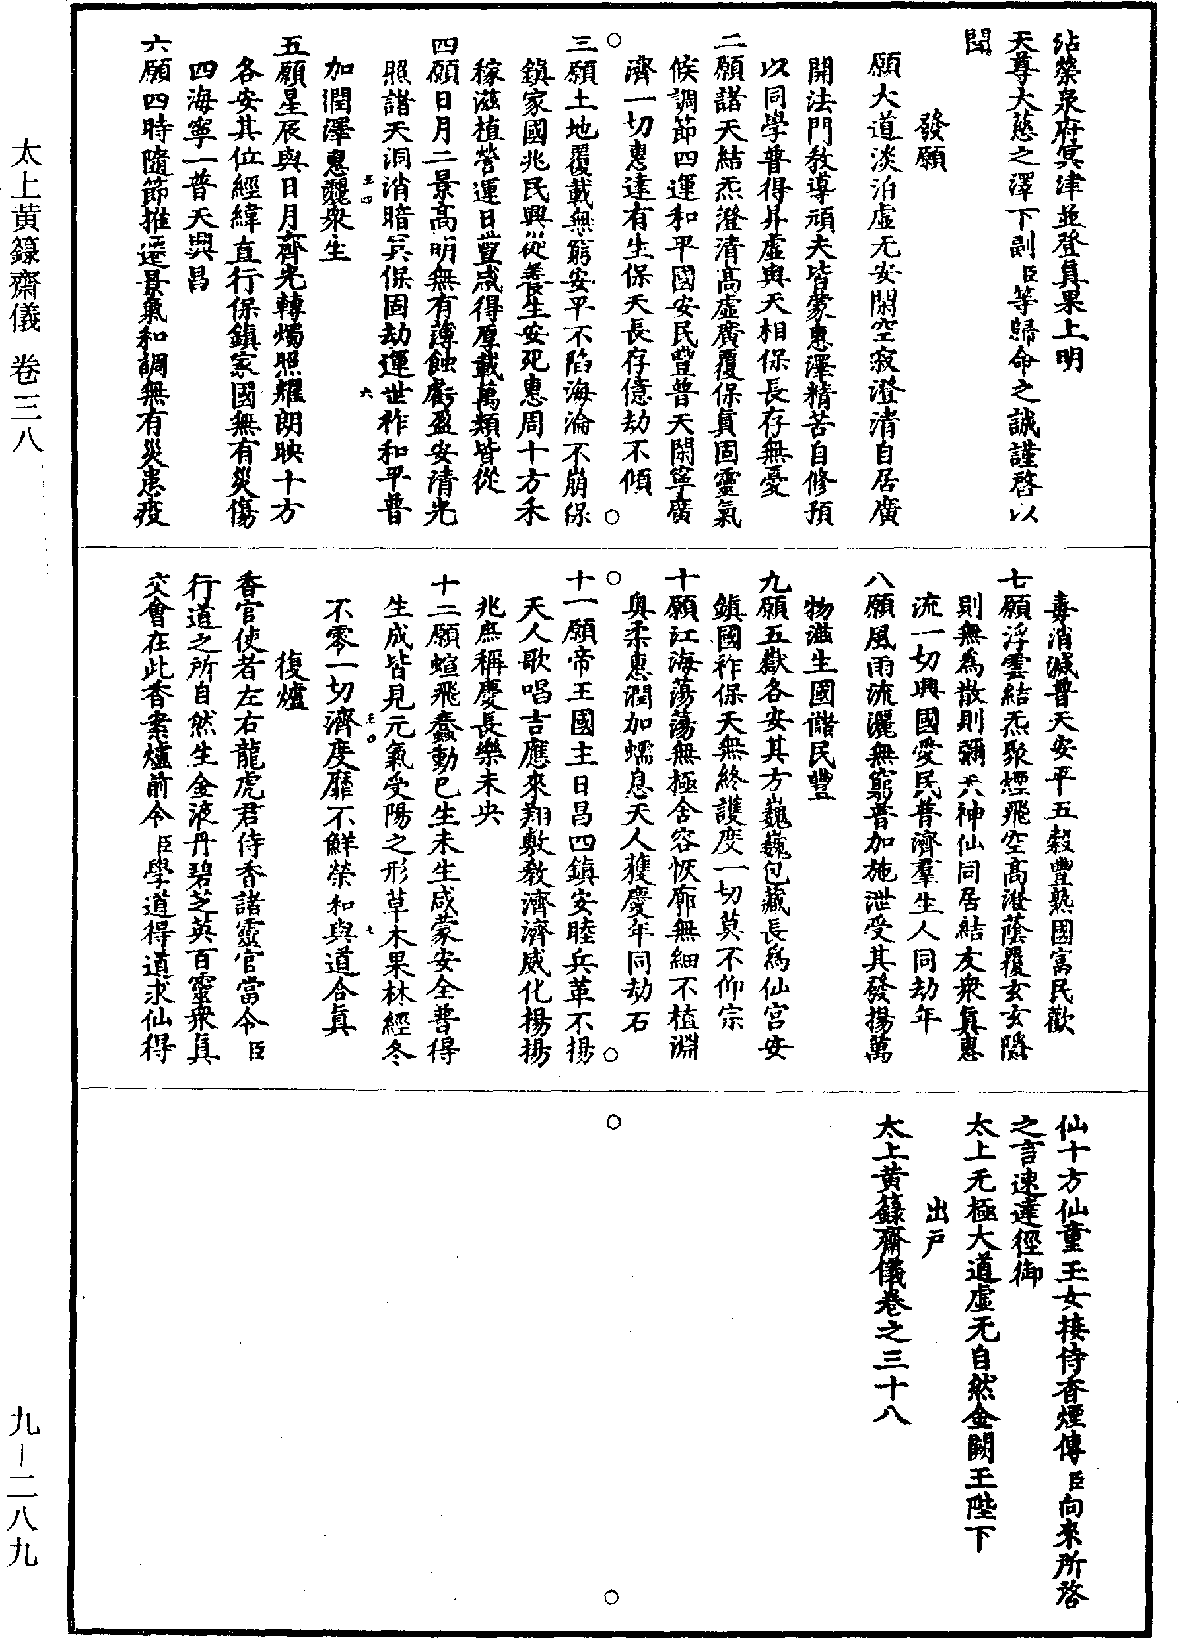 沾榮泉府冥津並登真果上明
天尊大慈之澤下副臣等歸命之誠謹啓以
聞
發願
願大道淡泊虛无安閑空寂澄清自居廣
開法門教導頑夫皆蒙惠澤精苦自修預
以同學普得昇虛與天相保長存無憂
二願諸天結炁澄清高虛廣覆保真固靈氣
候調節四運和平國安民豐普天閑寧廣
濟一切惠達有生保天長存億劫不傾
三願土地覆載無窮安平不陷海淪不崩保
鎮家國兆民興從養生安死惠周十方禾
稼滋植營運日豐咸得厚載萬類皆從
四願日月二景高明無有薄蝕虧盈安清光
照諸天洞消暗冥保固劫運世祚和平普
加潤澤惠麗衆生
五願星辰與日月齊光轉燭照耀朗映十方
各安其位經緯直行保鎮家國無有災傷
四海寧一普天興昌
六願四時隨節推遷景氣和調無有災患疫
毒消滅普天安平五穀豐熟國富民歡
七願浮雲結炁聚煙飛空高澄蔭覆玄玄隱
則無爲散則彌天神仙同居結友衆真惠
流一切興國愛民普濟羣生人同劫年
八願風雨流灑無窮普加施泄受其發揚萬
物滋生國諧民豐
九願五嶽各安其方巍巍包藏長爲仙宮安
鎮國祚保天無終護度一切莫不仰宗
十願江海蕩蕩無極舍容恢廓無細不植淵
奧柔惠潤加蠕息天人獲慶年同劫石
十一願帝王國主日昌四鎮安睦兵革不揚
天人歌唱吉應來翔敷教濟濟威化揚揚
兆庶稱慶長樂未央
十二願蝖飛蠢動已生未生咸蒙安全普得
生成皆見元氣受陽之形草木果林經冬
不零一切濟度靡不鮮榮和與道合真
復爐
香官使者左右龍虎君侍香諸靈官當令臣
行道之所自然生金液丹碧芝英百靈衆真
交會在此香案爐前令臣學道得道求仙得
仙十方仙童玉女接侍香煙傳臣向來所啓
之言速達徑御
太上无極大道虛无自然金闕玉陛下
出戶
太上黃籙齋儀卷之三十八
太上黃籙齋儀 卷三八
九－二八九